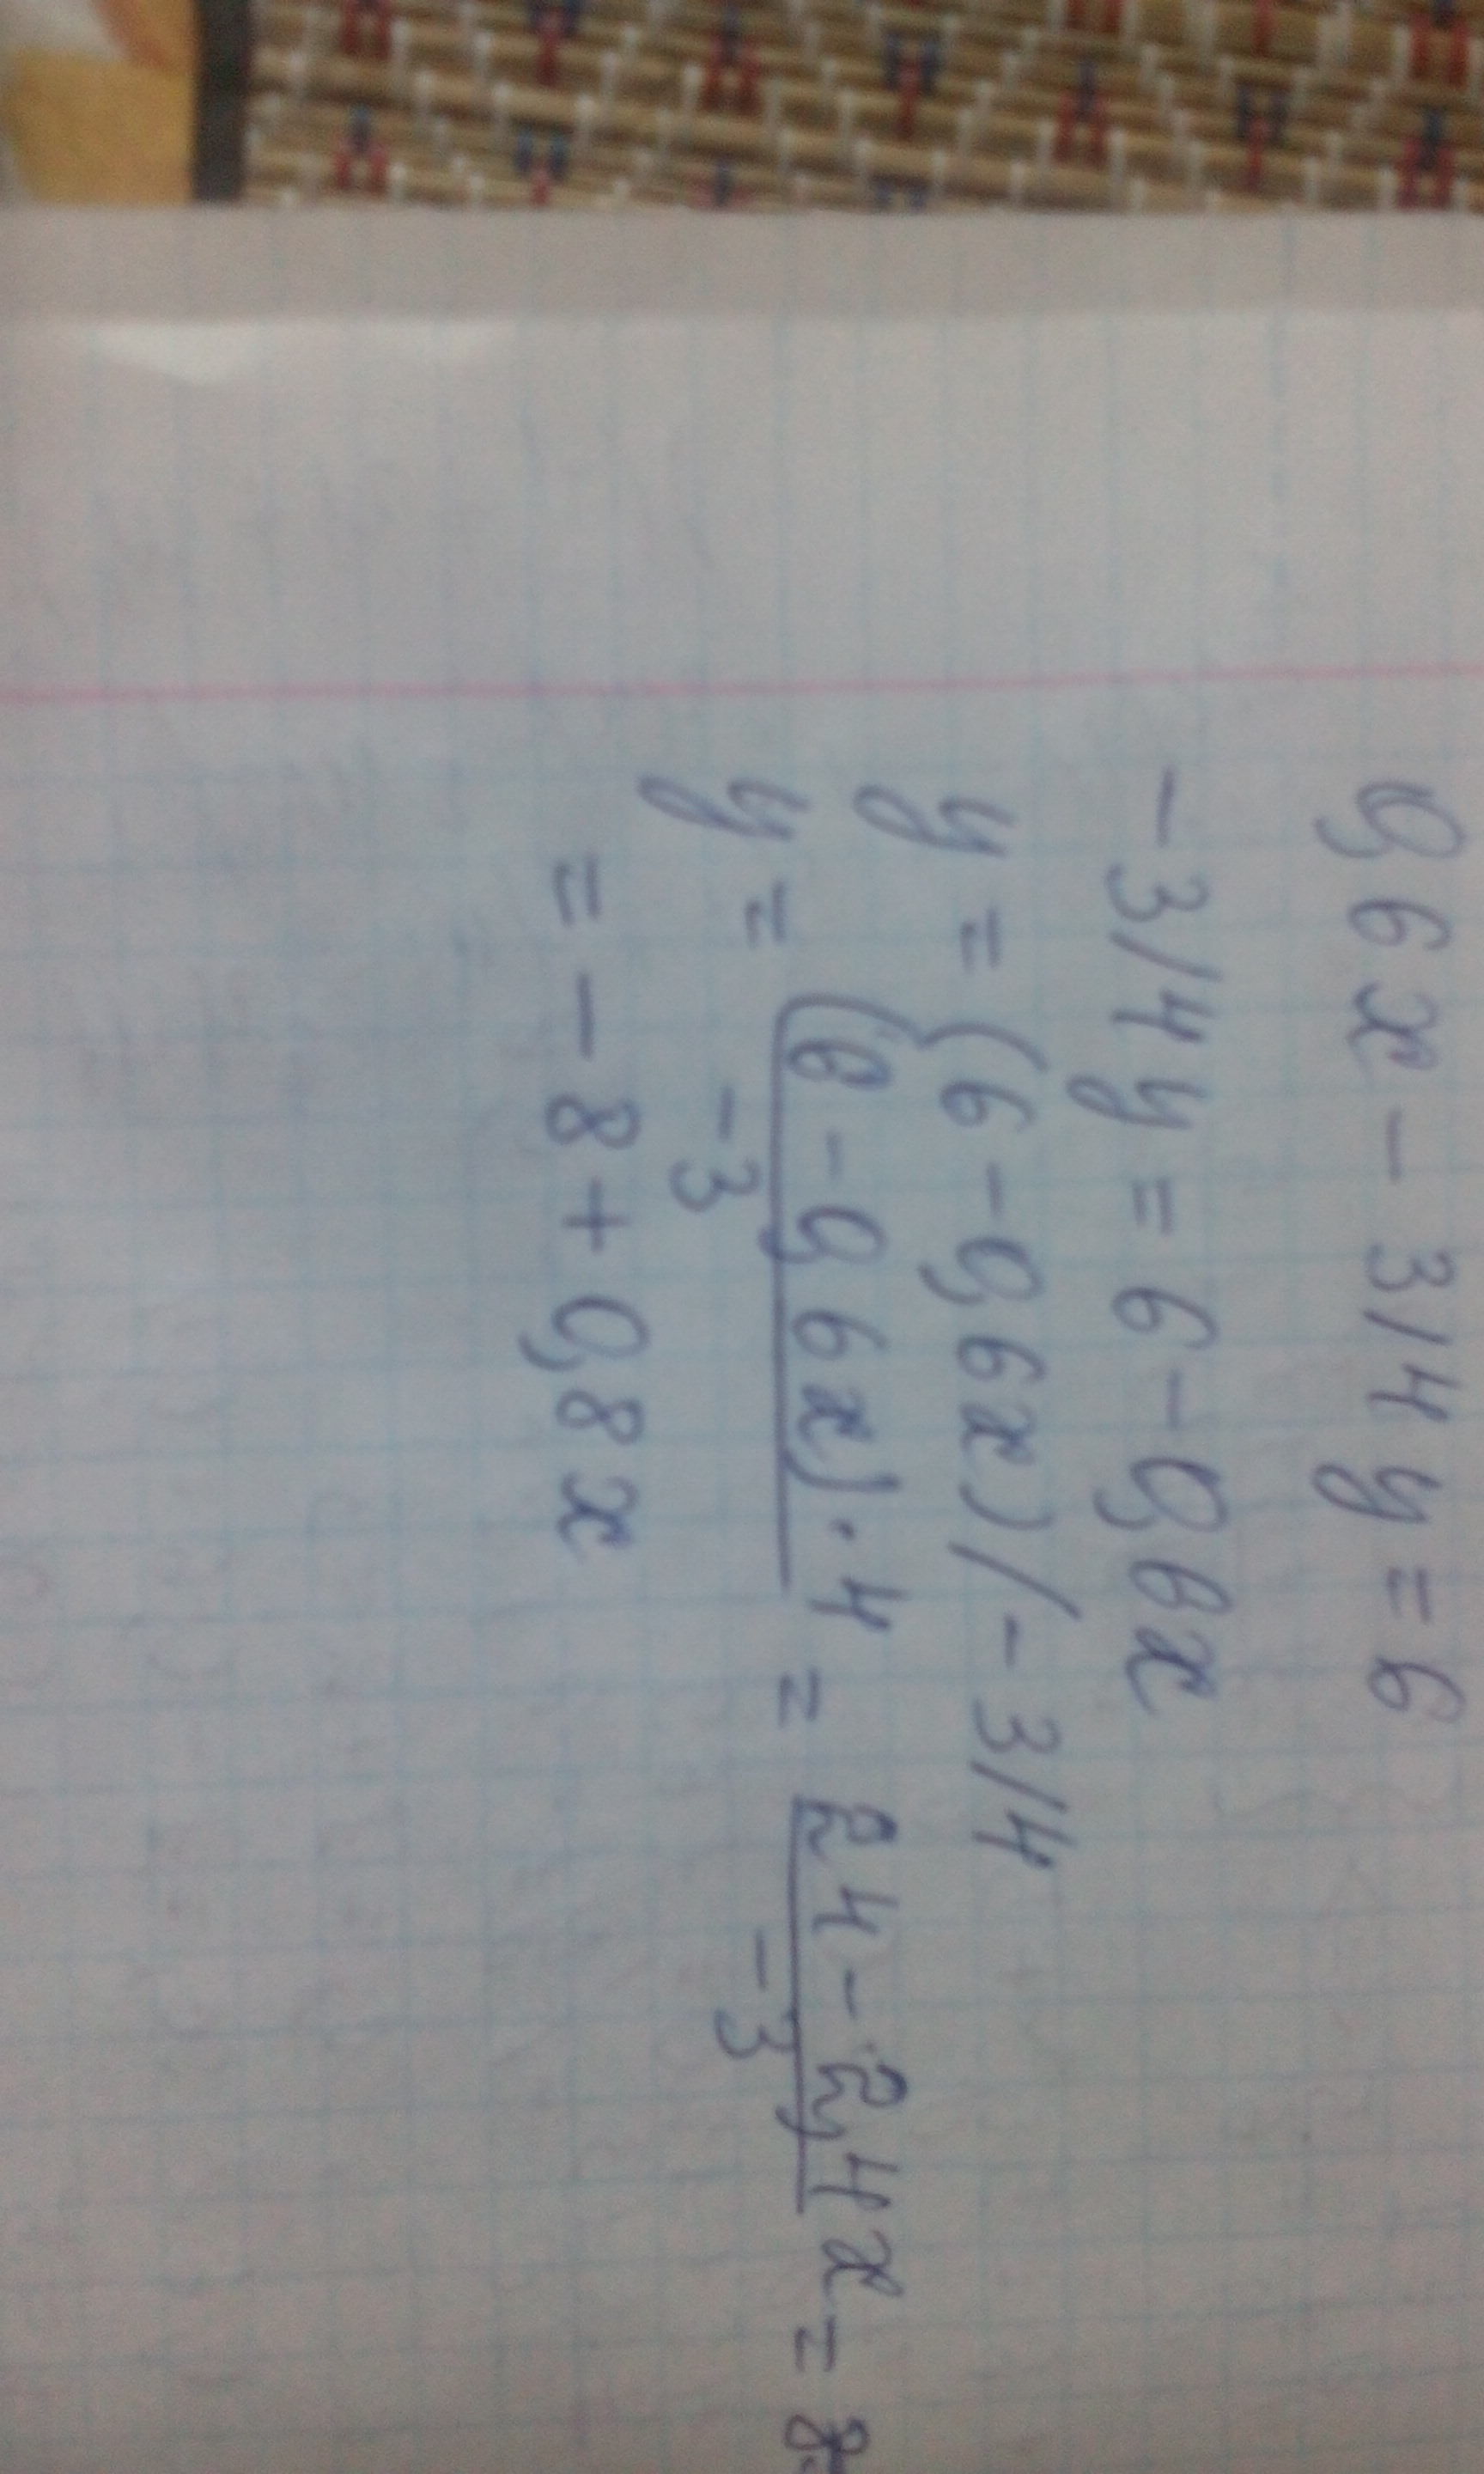 0,6x - 3/4y = 6
-3/4y = 6 - 0,6x
y = (6 - 0,6x) / - 3/4
y = (6 - 0,6x) · 4 / -3 = 24 - 2,4x / -3 =
= - 8 + 0,8x